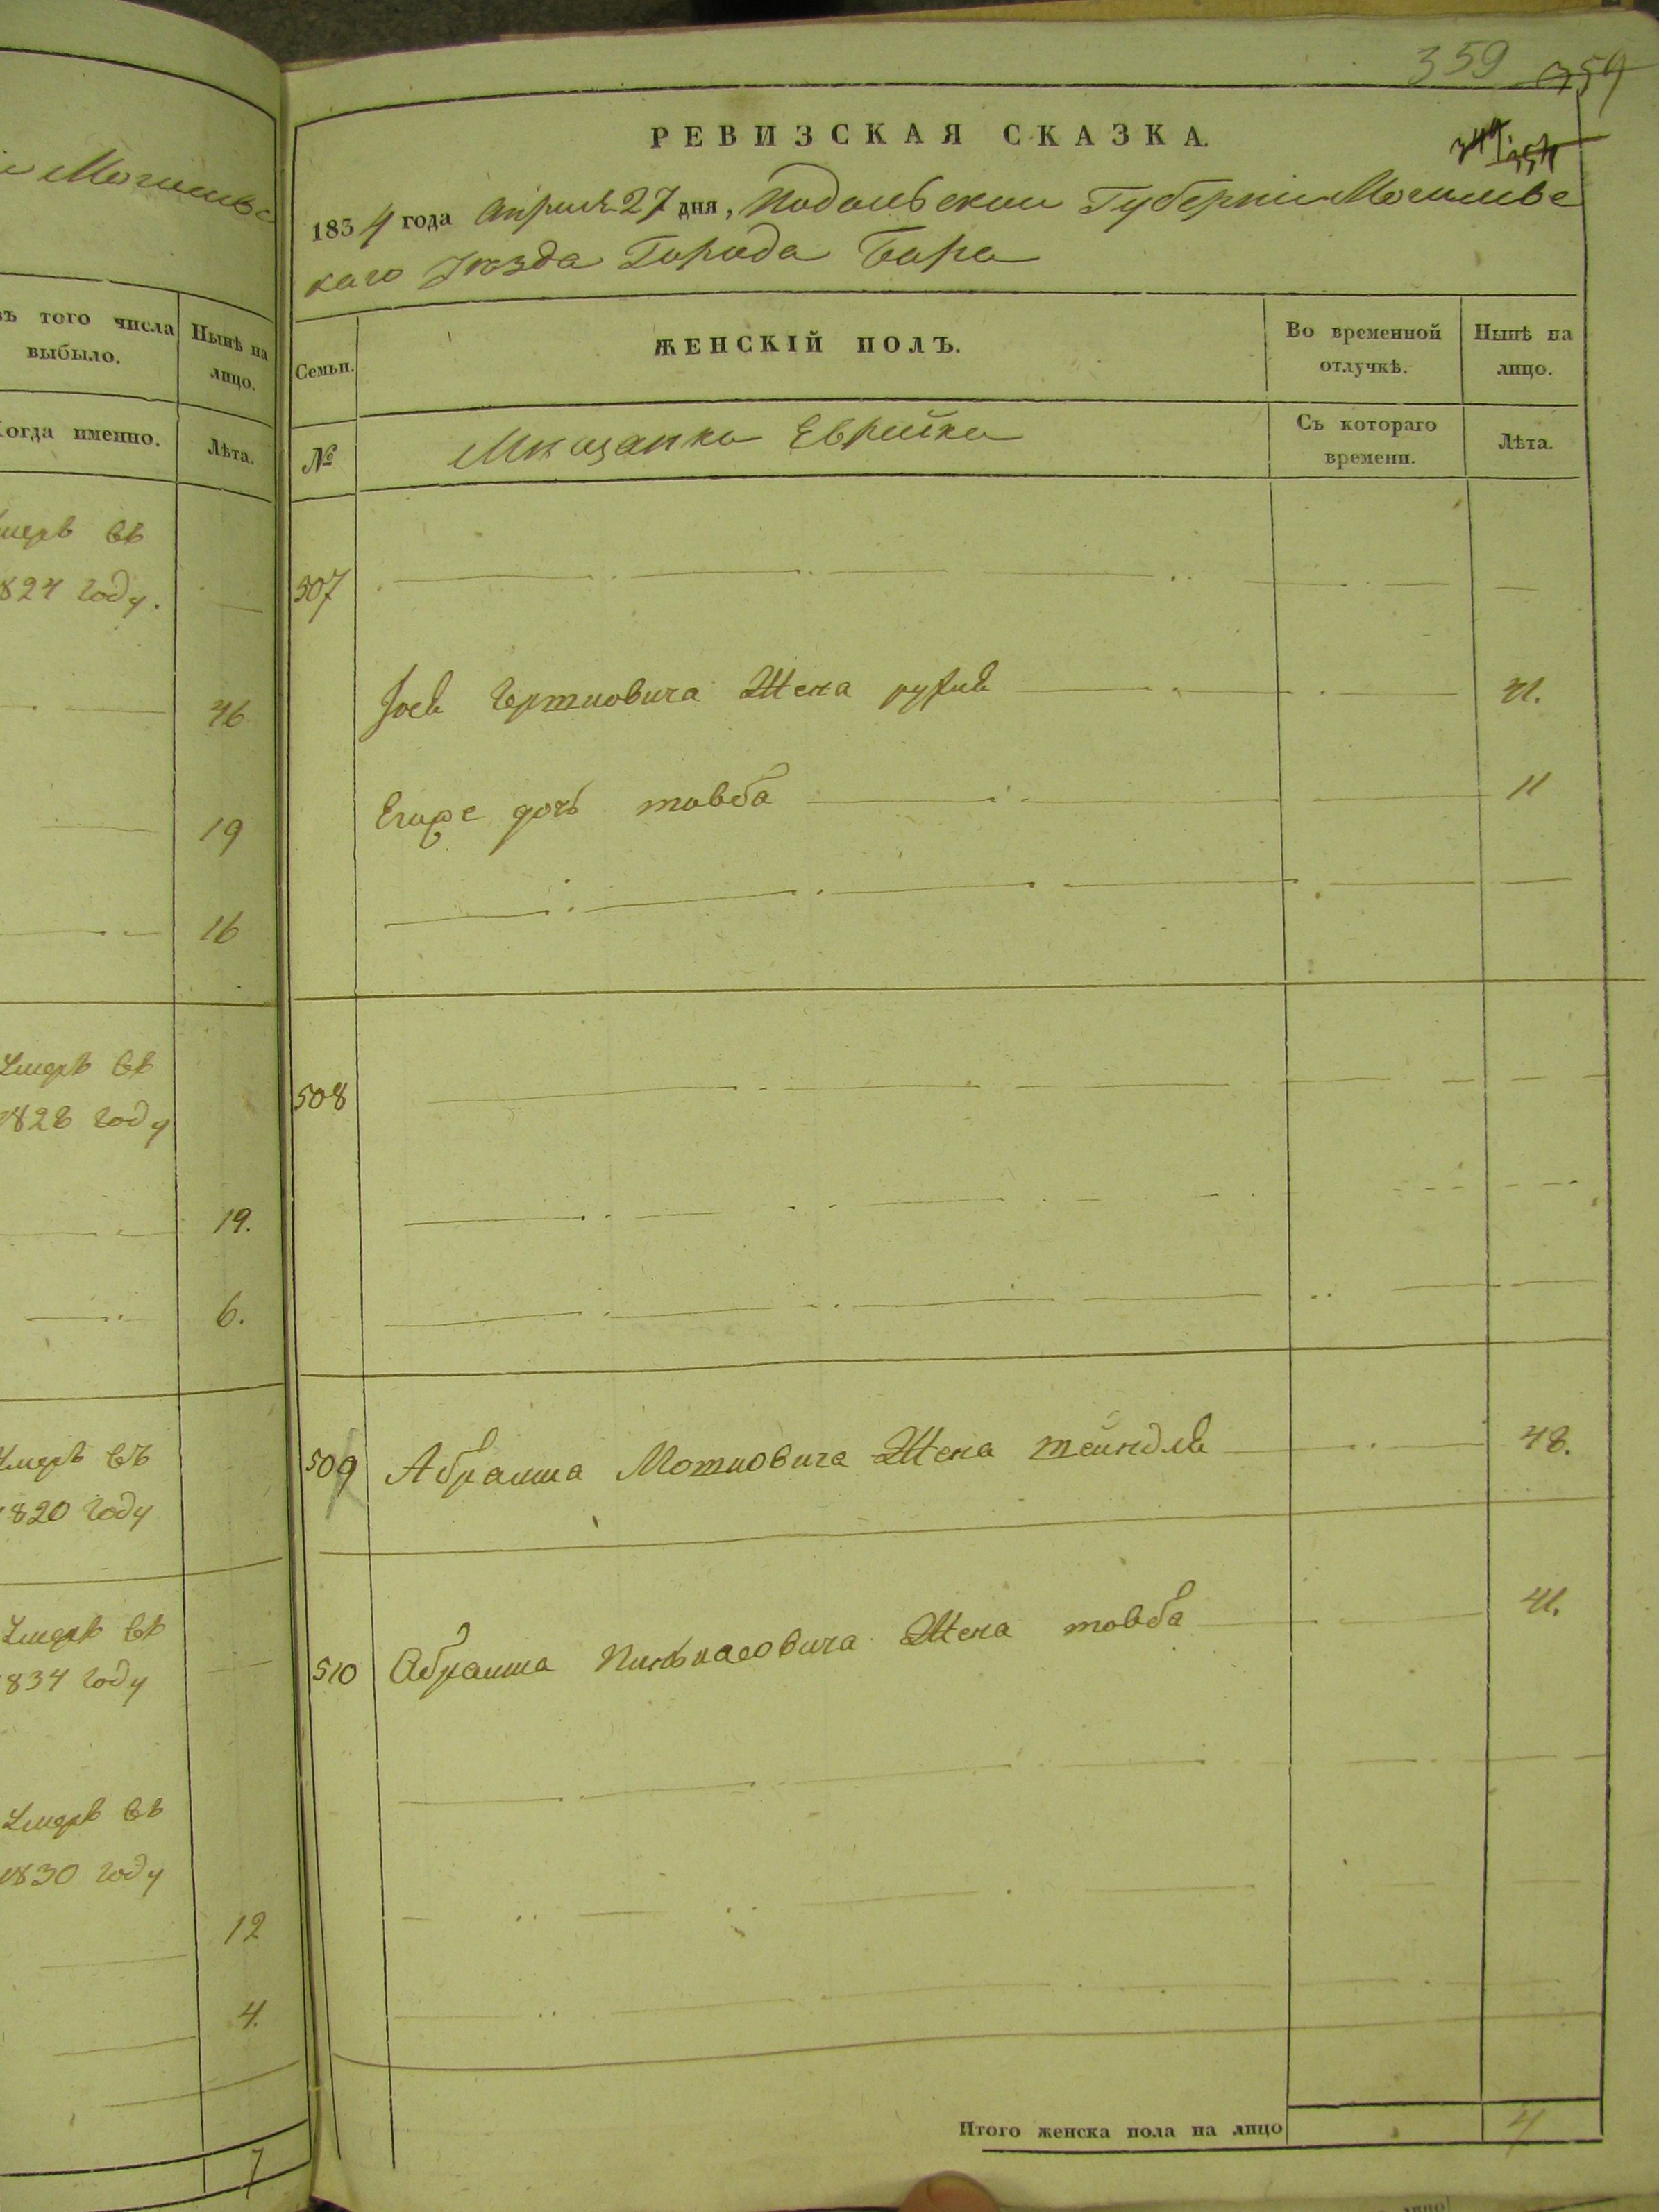 Могилевс
въ того числа
выбыло.
Нынѣ на
лицо.
Когда именно.
Лѣта.
Умеръ въ
1824 году.
46
19
16
Умеръ въ
1828 году
19.
6.
Умеръ въ
1820 году
Умеръ въ
1834 году
Умеръ въ
1830 году
12
4.
7
359 354
РЕВИЗСКАЯ СКАЗКА.
349
1834 года Апреля 27 дня, Подольской Губернии Могилевс
каго Уѣзда Города Бара
Семьи. ЖЕНСКІЙ ПОЛЪ.
Во временной
отлучкѣ.
Нынѣ на
лицо.
№ Мещанки Еврейки
Съ котораго
времени.
Лѣта.
507
Жена 41.
Егоже дочь товба 11
508
509 Абрамша Мотиовича Жена тейндля 48.
510 Абрамша Пинькасовича Жена товба 41.
Итого женска пола на лицо 4